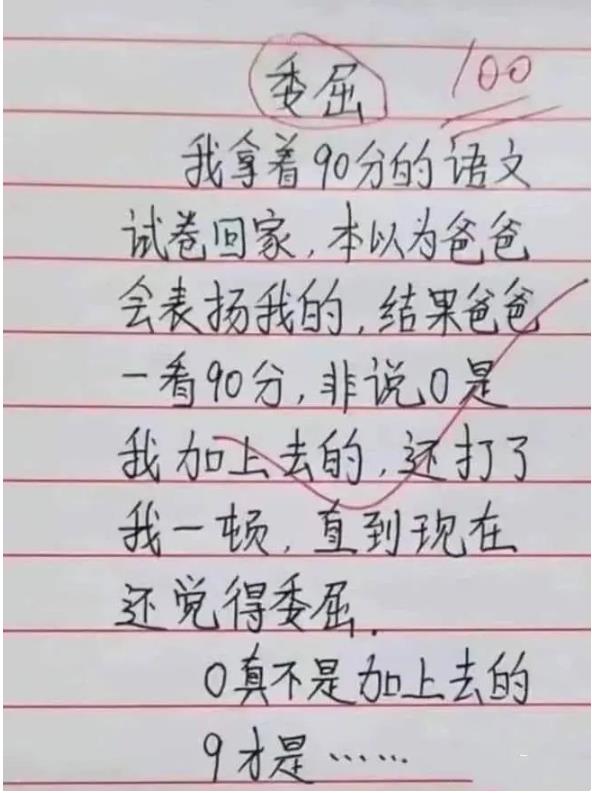 委屈 100
我拿着90分的语文
试卷回家,本以为爸爸
会表扬我的,结果爸爸
一看90分,非说0是
我加上去的,还打了
我一顿,直到现在
还觉得委屈.
0真不是加上去的
9才是……